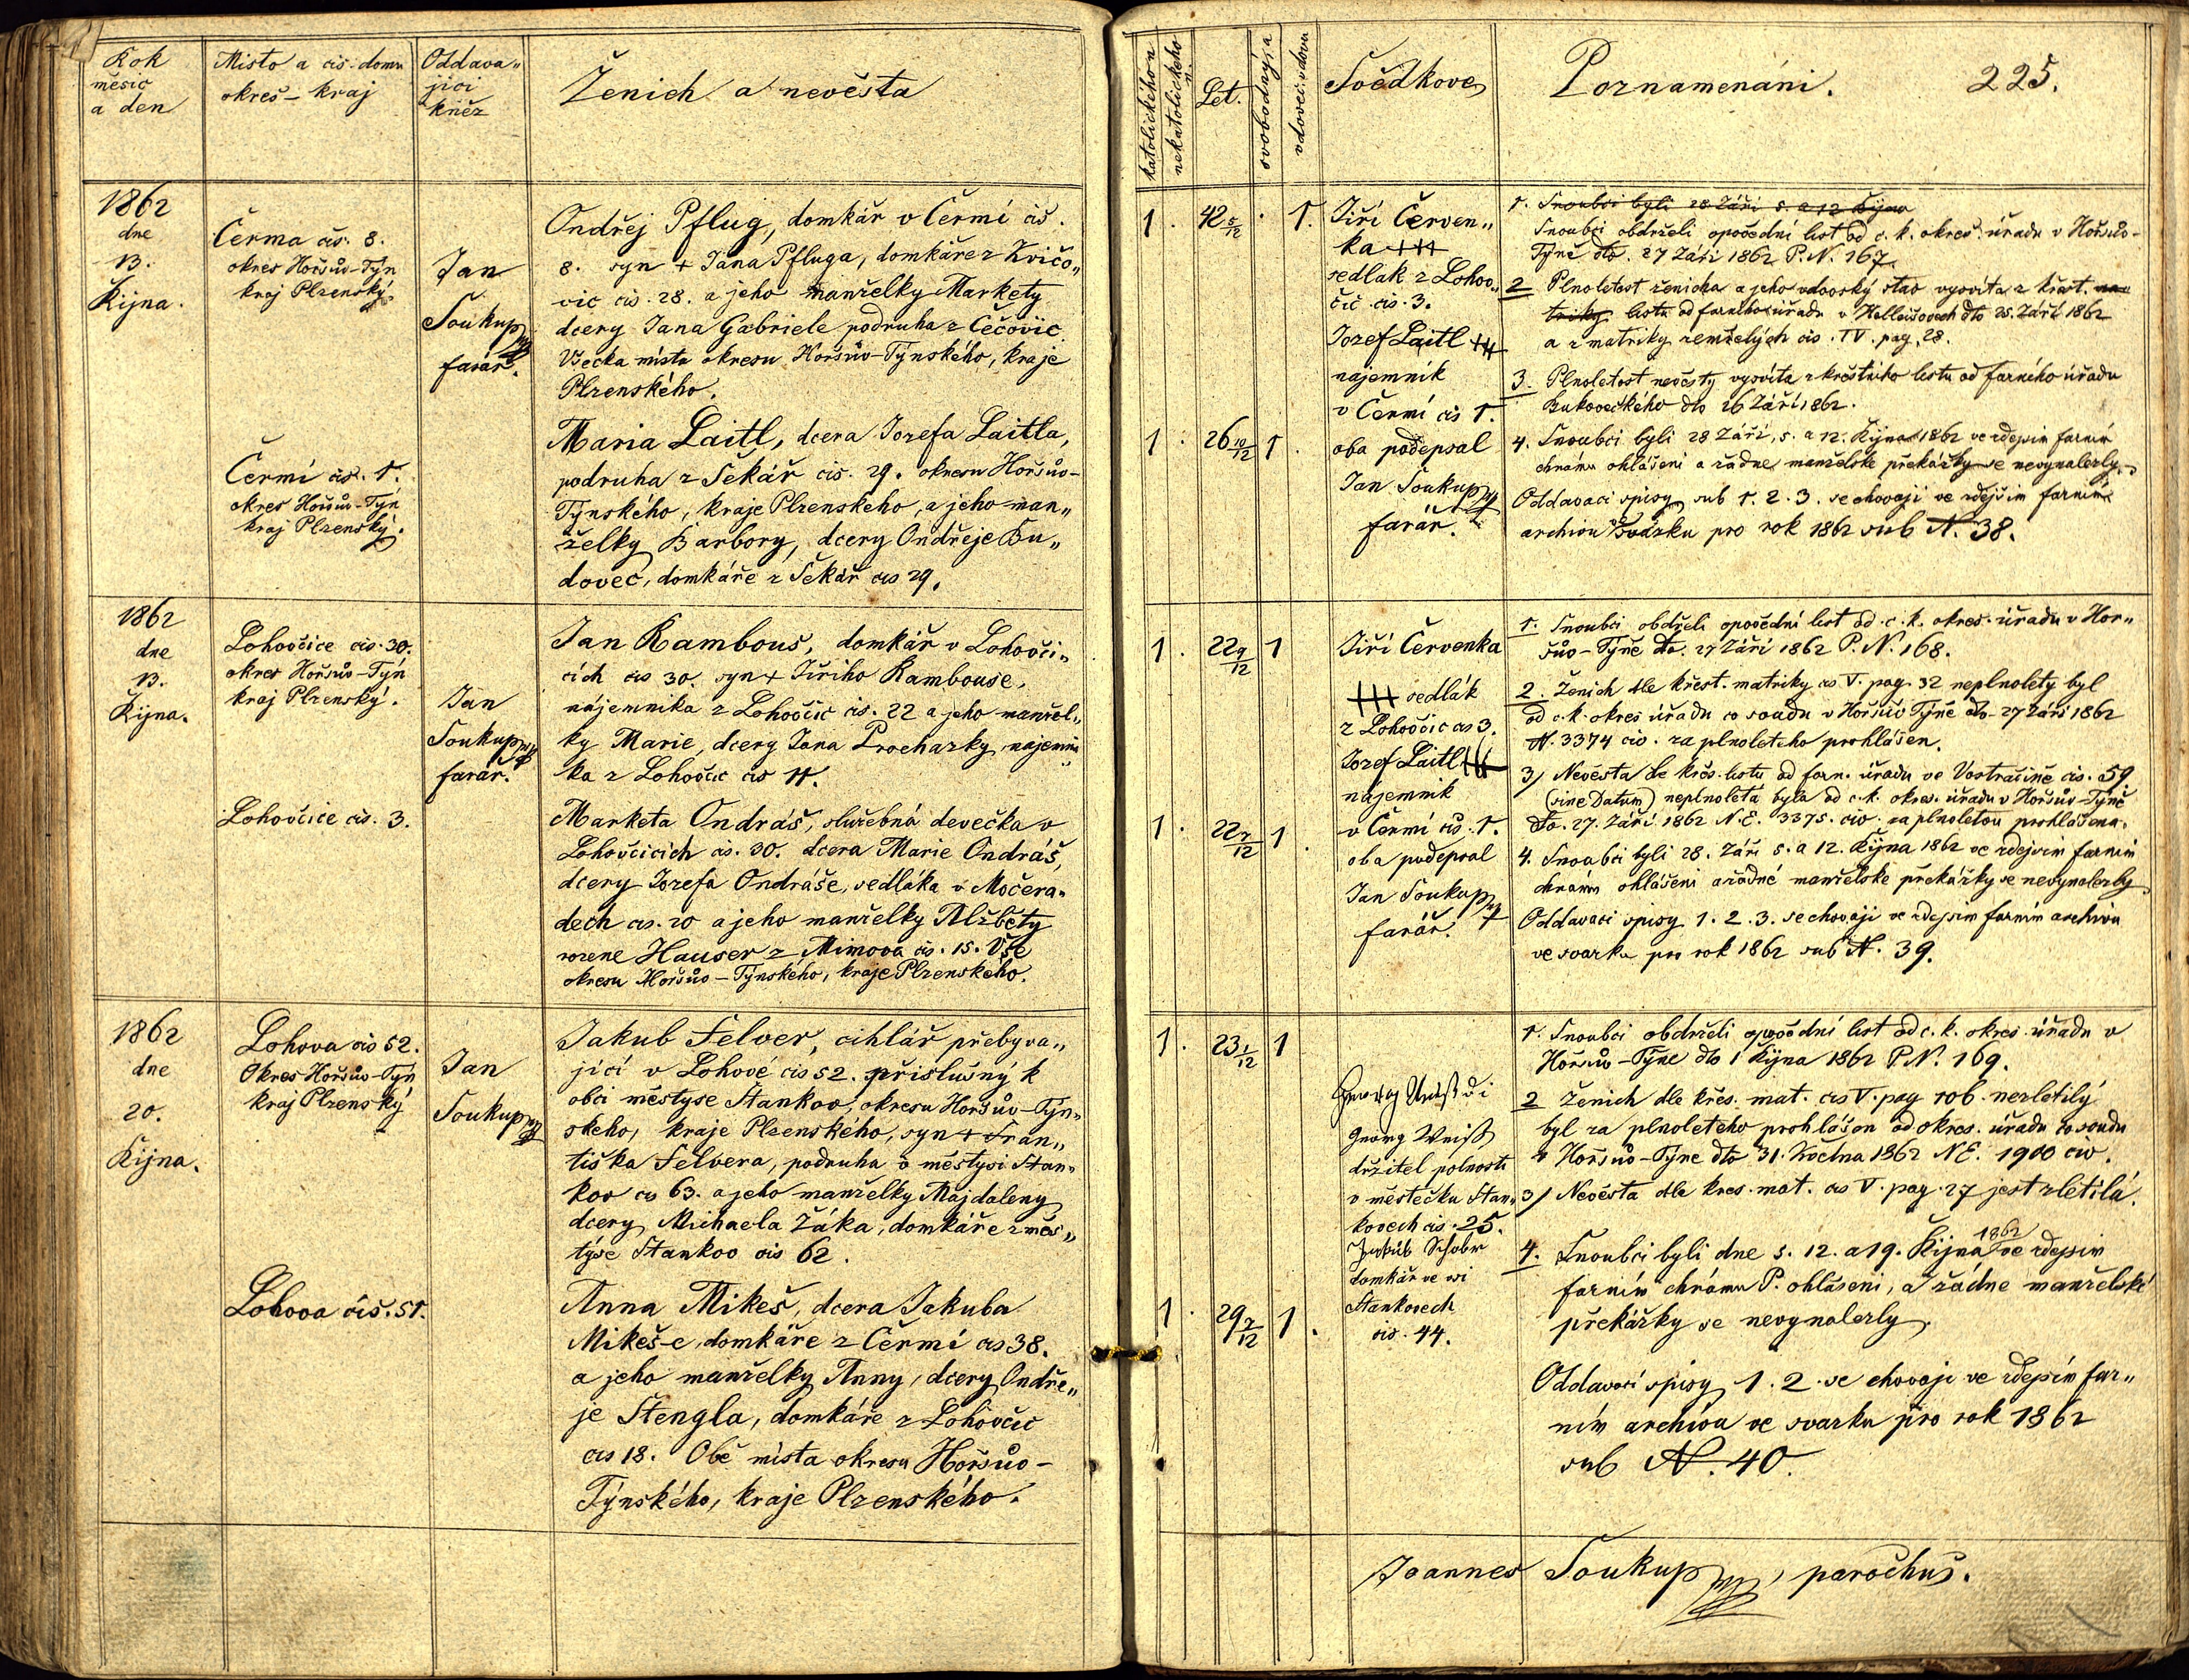 Rok
měsic
a den
Misto a cis. domu
okres - kraj
Oddava„
jici
kněz
Ženich a nevěsta
1862
dne
13.
Řijna.
Čerma čis. 8.
okres Horšův-Týn
kraj Plzenský
Jan
Soukup
farář.
Ondřej Pflug, domkář v Čermí čis.
8. syn + Jana Pfluga, domkáře z Kvičo„
vic cis. 28. a jeho manželky Markety
dcery Jana Gabriele podruha z Čečovic
Všecka místa okresu Horšův-Týnského, kraje
Plzenského.
Čermí čis. 1.
okres Horšův-Týn
kraj Plzenský.
Maria Laitl, dcera Jozefa Laitla,
podruha z Sekář cis. 29. okresu Horšův-
Týnského, kraje Plzenského, a jeho man„
želky Barbory, dcery Ondřeje Bu„
dovec, domkáře z Sekář cis 29.
1862
dne
13.
Řijna.
Lohovčice cis. 30.
okres Horšův-Týn
kraj Plzenský.
Jan
Soukup
farář.
Jan Rambous, domkář v Lohovči„
cích cis 30. syn + Jiřiho Rambouse,
nájemnika z Lohovčic cis. 22 a jeho manžel„
ky Marie, dcery Jana Prochazky, najemni
ka z Lohovčic cis 11.
Lohovčice cis. 3.
Marketa Ondráš, služebná devečka v
Lohovčicich cis. 30. dcera Marie Ondráš,
dcery Jozefa Ondráše, sedláka v Močera„
dech cis. 20 a jeho manželky Alžběty
rozene Hauser z Mimova cis. 15. Vše
okresu Horšův-Týnského, kraje Plzenského.
1862
dne
20.
Řijna.
Lohova cis 52.
Okres Horšův-Týn
kraj Plzenský
Jan
Soukup
Jakub Felver, cihlář přebyva„
jící v Lohové cis 52. přislušný k
obci městyse Stankov, okresu Horšův-Týn„
skeho, kraje Plzenského, syn + Fran„
tiška Felvera, podruha v městysi Stan„
kov cis 63. a jeho manželky Majdaleny
dcery Michaela Žáka, domkáře z měs„
týse Stankov cis 62.
Lohova čis. 51.
Anna Mikeš, dcera Jakuba
Mikeš-e, domkáře z Čermí cis 38.
a jeho manželky Anny, dcery Ondře„
je Stengla, domkáře z Lohovčic
cis 18. Obě mista okresu Horšův-
Týnského, kraje Plzenského.
katolického n.
nekatolického
Let.
svobodný a
vdovec. vdova
Svědkove
Poznamenáni. 225.
1. 42 5/12 . 1.
Jiří Červen„
ka +++
sedlák z Lohov„
čic cis. 3.
Jozef Laitl +++
najemnik
v Čermí cis 1.
1. 26 10/12 1.
oba podepsal
Jan Soukup
farář.
1. Snoubci byli 28 Záři 5. a 12 Řijna
Snoubci obdrželi opovědni list od c. k. okres. úřadu v Horšův-
Týně dto. 27 Záři 1862 P.N. 167.
2 Plnoletost ženicha a jeho vdovský stav vysvíta z křest.
listu od farniho úřadu v Holleišovech dto 25. Záři 1862
a z matriky zemřelých cis. IV. pag. 28.
3. Plnoletost nevěsty vysvíta z křestniho listu od farního úřadu
Bukoveckého dto 26 Záři 1862.
4. Snoubci byli 28 Záři, 5. a 12. Řijna 1862 ve zdejsim farnim
chrámu ohlášeni a žadne manželske překážky se nevynalezly.
Oddavaci spisy sub 1. 2. 3. se chovaji ve zdejšim farnim
archivu Svázku pro rok 1862 sub N. 38.
1. 22 9/12 1
Jiří Červenka
+++ sedlák
z Lohovčic cis 3.
Jozef Laitl +++
najemnik
v Čermí cis. 1.
1. 22 7/12 1.
oba podepsal
Jan Soukup
farář.
1. Snoubci obdrželi opovědní list od c. k. okres. úřadu v Hor„
šův-Týně dto. 27 Záři 1862 P. N. 168.
2. Ženich dle křest. matriky cis V. pag. 32 neplnolety byl
od c. k. okres úřadu co soudu v Horšův Týně dto 27 Záři 1862
N. 3374 civ. za plnoleteho prohlášen.
3) Nevěsta dle křes. listu od farn. úřadu ve Vostračině cis. 59
(sine Datum) neplnoleta byla od c. k. okres. úřadu v Horšův-Týně
dto. 27. Záři 1862 N.E. 3375. civ. za plnoletou prohlášena.
4. Snoubci byli 28. Záři 5. a 12. Řijna 1862 ve zdejsim farnim
chrámu ohlášeni a žadné manželské překážky se nevynalezly
Oddavaci spisy 1. 2. 3. se chovaji ve zdejsim farnim archivu
ve svazku pro rok 1862 sub N. 39.
1. 23 1/12 1
Georg Weiß
držitel polnosti
v městečku Stan„
kovech cis. 25.
Jakub Schober
domkář ve vsi
Stankovech
cis. 44.
1. 29 7/12 1.
1. Snoubci obdrželi opovědní list od c. k. okres. úřadu v
Horšův-Týne dto 1 Řijna 1862 P.N. 169.
2 Ženich dle křes. mat. cis V. pag 106. nezletilý
byl za plnoleteho prohlášon od okres. úřadu co soudu
v Horšův-Týne dto 31. Května 1862 N.E. 1900 civ.
3) Nevěsta dle kres. mat. cis V. pag. 27 jest zletilá.
4. Snoubci byli dne 5. 12. a 19. Řijna 1862 ve zdejsim
farnim chrámu P. ohlášeni, a žádne manželské
překážky se nevynalezly.
Oddavaci spisy 1. 2. se chovaji ve zdejsím far„
ním archivu ve svazku pro rok 1862
sub N. 40.
Joannes Soukup, parochus.